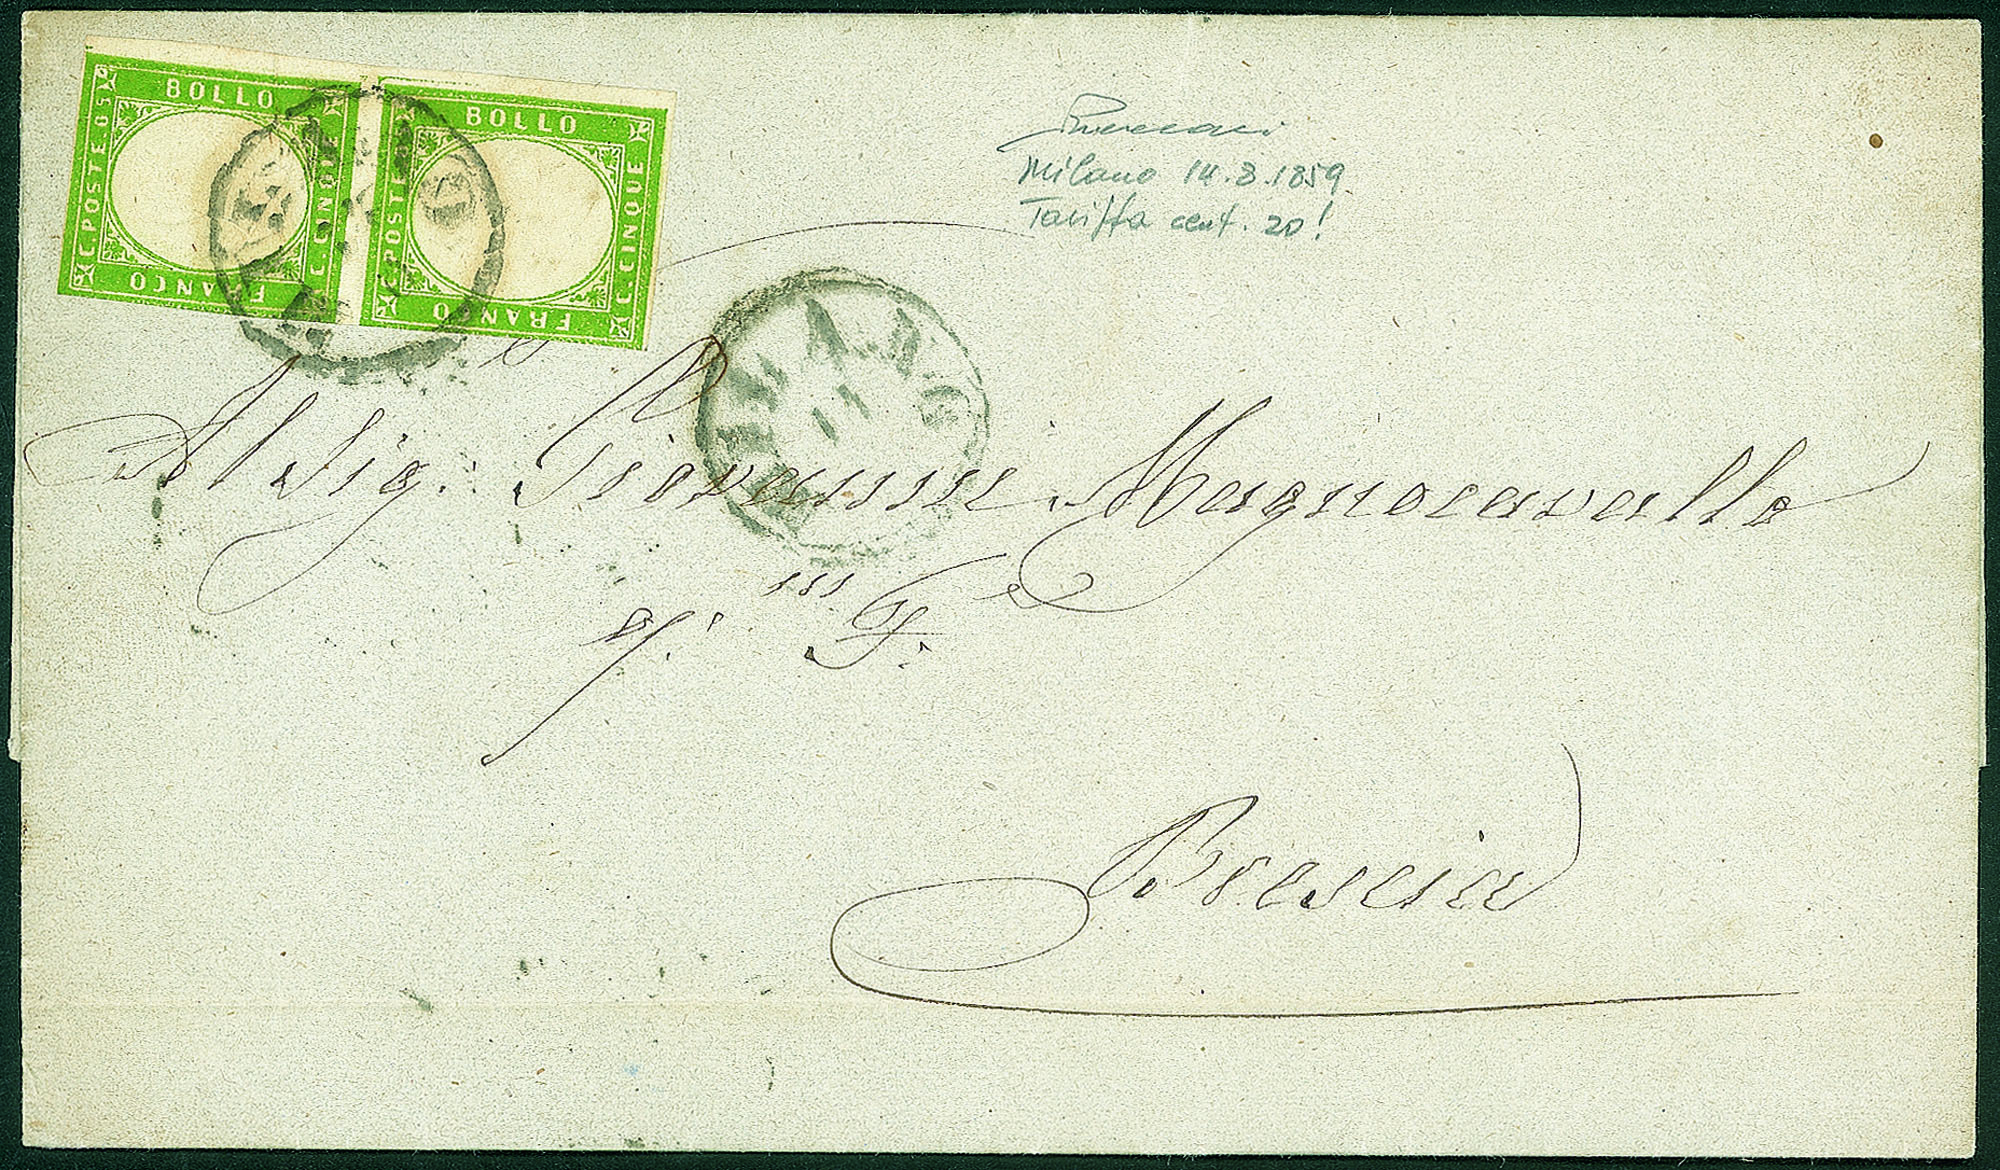 BOLLO
C. POSTE. 05
C. CINQUE
FRANCO
BOLLO
C. POSTE
C. CINQUE
FRANCO
MILANO
Milano 14.8.1859
Tariffa cent. 20!
MILANO
14
Al Sig. Giovanni Magnocavallo
q.m F.
Brescia